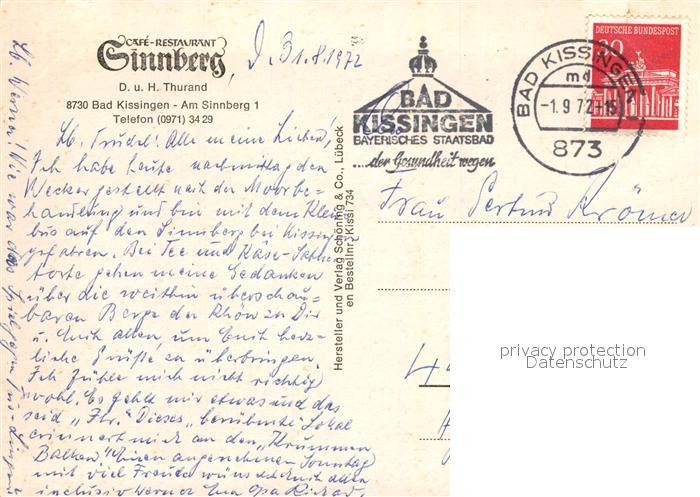 CAFÉ-RESTAURANT
Sinnberg
D. u. H. Thurand
8730 Bad Kissingen - Am Sinnberg 1
Telefon (0971) 34 29
D. 31.8.1972
Lb. Trudel! Alle meine Lieben!
Ich habe heute nachmittag den
Wecker gestellt nach der Moorbe=
handlung und bin mit dem Klein
bus auf den Sinnberg bei Kissing
gefahren. Bei Tee und Käse-Sahne
torte gehen meine Gedanken
über die weithin überschau=
baren Berge der Rhön zu Dir
u. Euch allen, um Euch herz=
liche Grüße zu überbringen.
Ich fühle mich nicht richtig
wohl. Es fehlt mir etwas und das
seid "Ihr." Dieses "berühmte" Lokal
erinnert mich an den "Krummen
Balken" Einen angenehmen Sonntag
mit viel Freude wünscht Euch allen
inclusiv Werner Euer Opa
Lb. Werner! Wie war das
Hersteller und Verlag Schöning & Co., Lübeck
en Bestellnr. Kissi 734
BAD
KISSINGEN
BAYERISCHES STAATSBAD
...der Gesundheit wegen
BAD KISSINGEN
md
-1.9.72-15
873
DEUTSCHE BUNDESPOST
30
Frau Gertrud Krömer
privacy protection
Datenschutz